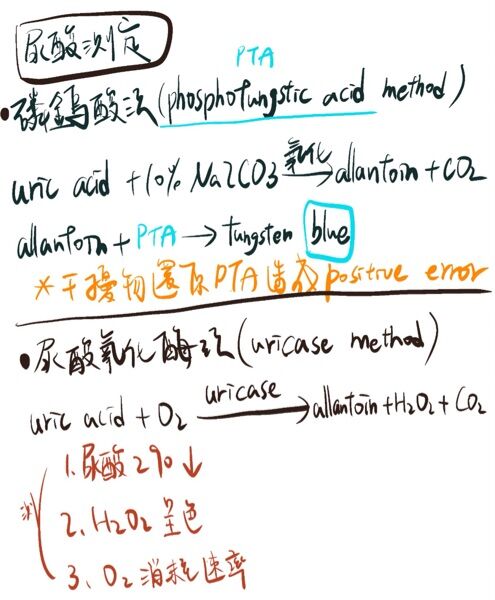 尿酸測定
PTA
•磷鎢酸法(phosphotungstic acid method)
uric acid + 10% Na2CO3 氧化→ allantoin + CO2
allantoin + PTA → tungsten blue
*干擾物還原PTA造成positive error
•尿酸氧化酶法(uricase method)
uric acid + O2 uricase→ allantoin + H2O2 + CO2
1.尿酸290↓
測 2.H2O2呈色
3.O2消耗速率